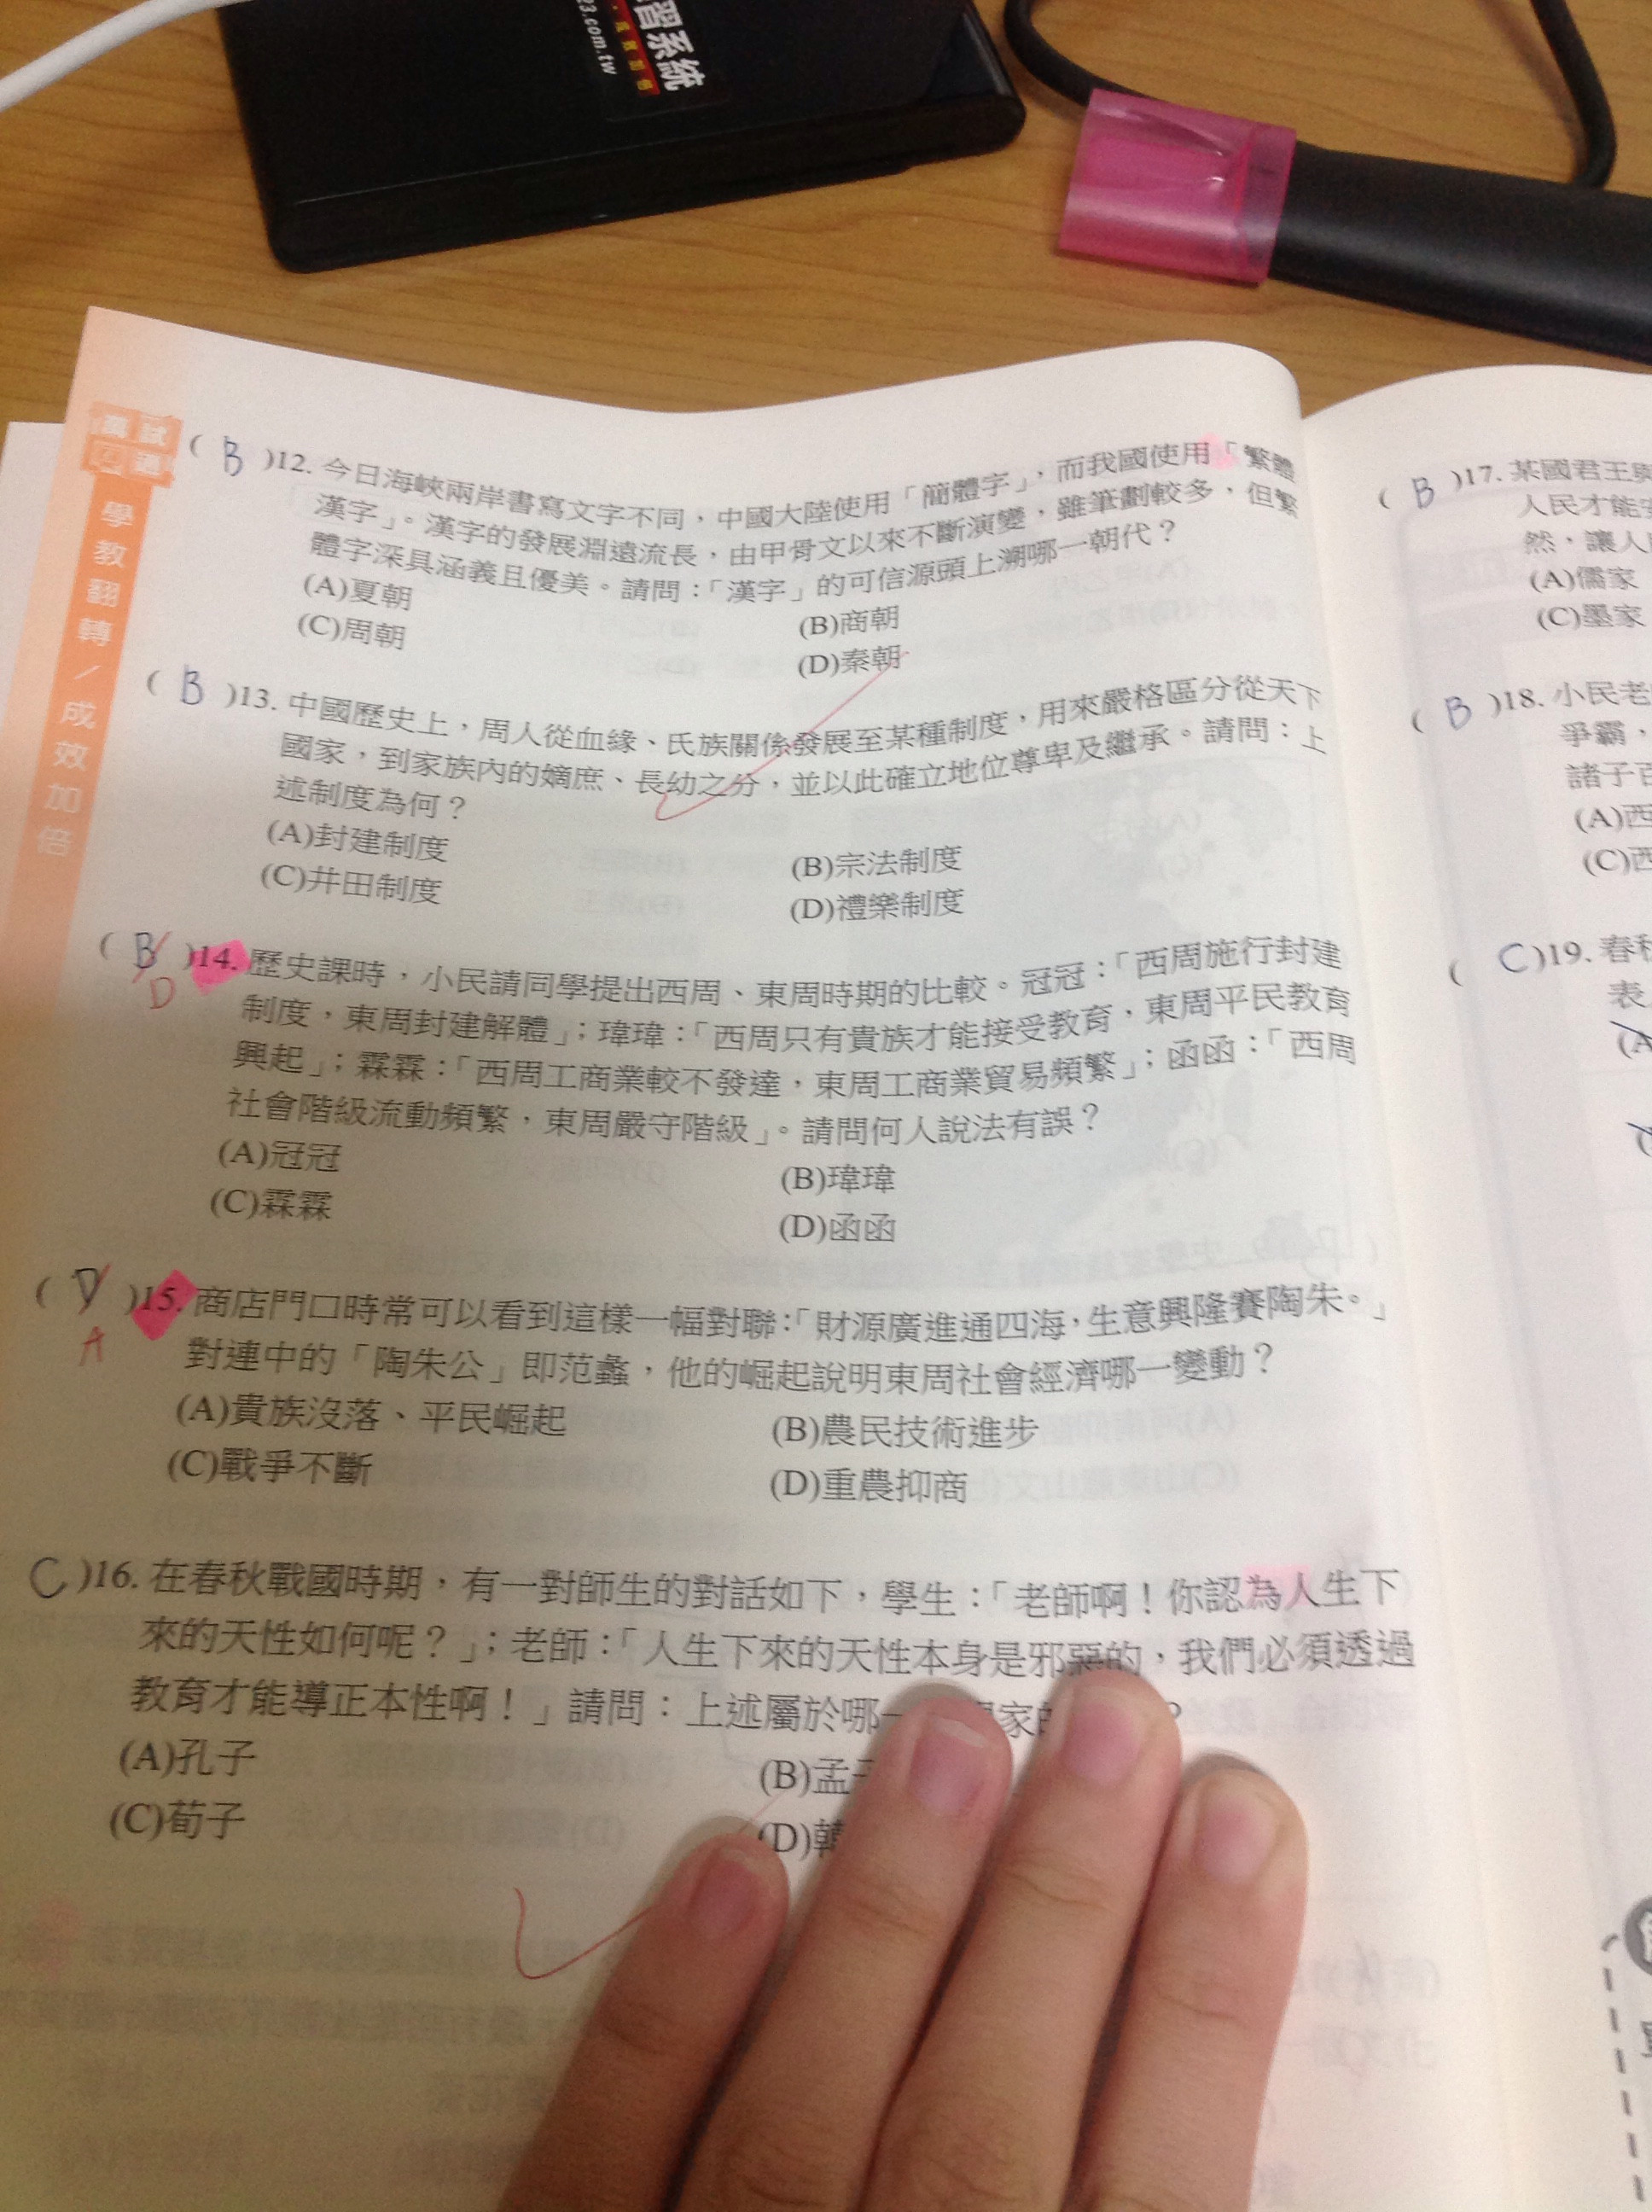 習系統
23.com.tw
學教翻轉／成效加倍
( B )12. 今日海峽兩岸書寫文字不同，中國大陸使用「簡體字」，而我國使用「繁體
漢字」。漢字的發展淵遠流長，由甲骨文以來不斷演變，雖筆劃較多，但繁
體字深具涵義且優美。請問：「漢字」的可信源頭上溯哪一朝代？
(A)夏朝 (B)商朝
(C)周朝 (D)秦朝
( B )13. 中國歷史上，周人從血緣、氏族關係發展至某種制度，用來嚴格區分從天下
國家，到家族內的嫡庶、長幼之分，並以此確立地位尊卑及繼承。請問：上
述制度為何？
(A)封建制度 (B)宗法制度
(C)井田制度 (D)禮樂制度
( B )14. 歷史課時，小民請同學提出西周、東周時期的比較。冠冠：「西周施行封建
D
制度，東周封建解體」；瑋瑋：「西周只有貴族才能接受教育，東周平民教育
興起」；霖霖：「西周工商業較不發達，東周工商業貿易頻繁」；函函：「西周
社會階級流動頻繁，東周嚴守階級」。請問何人說法有誤？
(A)冠冠 (B)瑋瑋
(C)霖霖 (D)函函
( D )15. 商店門口時常可以看到這樣一幅對聯：「財源廣進通四海，生意興隆賽陶朱。」
A
對連中的「陶朱公」即范蠡，他的崛起說明東周社會經濟哪一變動？
(A)貴族沒落、平民崛起 (B)農民技術進步
(C)戰爭不斷 (D)重農抑商
C )16. 在春秋戰國時期，有一對師生的對話如下，學生：「老師啊！你認為人生下
來的天性如何呢？」；老師：「人生下來的天性本身是邪惡的，我們必須透過
教育才能導正本性啊！」請問：上述屬於哪一 家的 ？
(A)孔子 (B)孟子
(C)荀子 (D)韓
( B )17. 某國君王與
人民才能
然，讓人
(A)儒家
(C)墨家
( B )18. 小民老
爭霸，
諸子百
(A)西
(C)西
( C )19. 春秋
表
(A